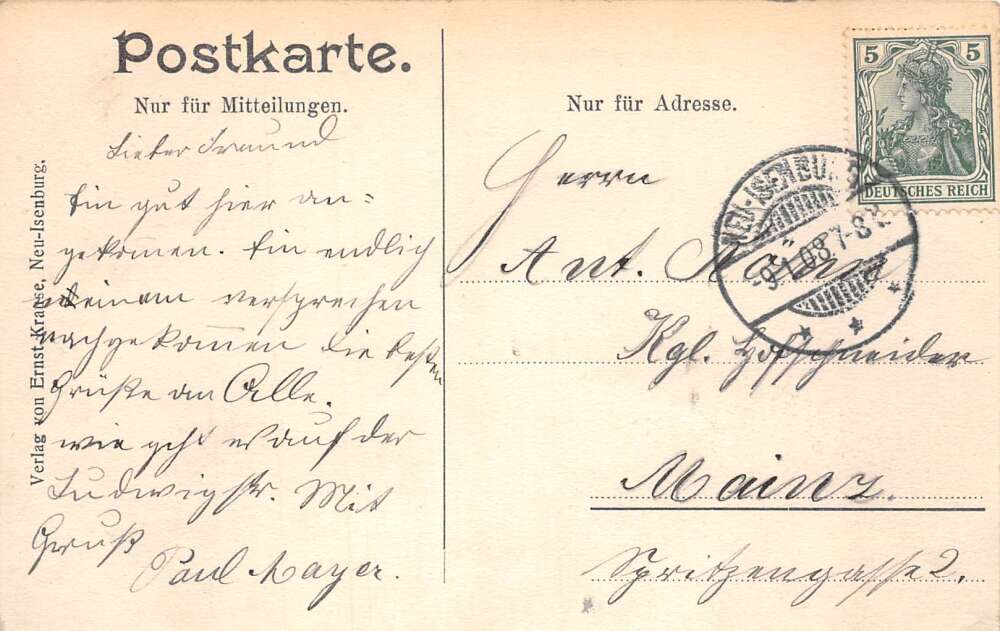 Postkarte.
Nur für Mitteilungen.
Lieber Freund
Bin gut hier an=
gekommen. Bin endlich
meinem versprechen
nachgekom̅en die besten
Grüße an Alle.
wie geht es auf der
Ludwigstr. Mit
Gruß
Paul Mayer.
Verlag von Ernst Krause, Neu-Isenburg.
Nur für Adresse.
Herrn
Ant.
Kgl. Hofschneider
Mainz.
Spritzengasse 2.
5 5
DEUTSCHES REICH
NEU-ISENBURG
-9.1.08 7-8